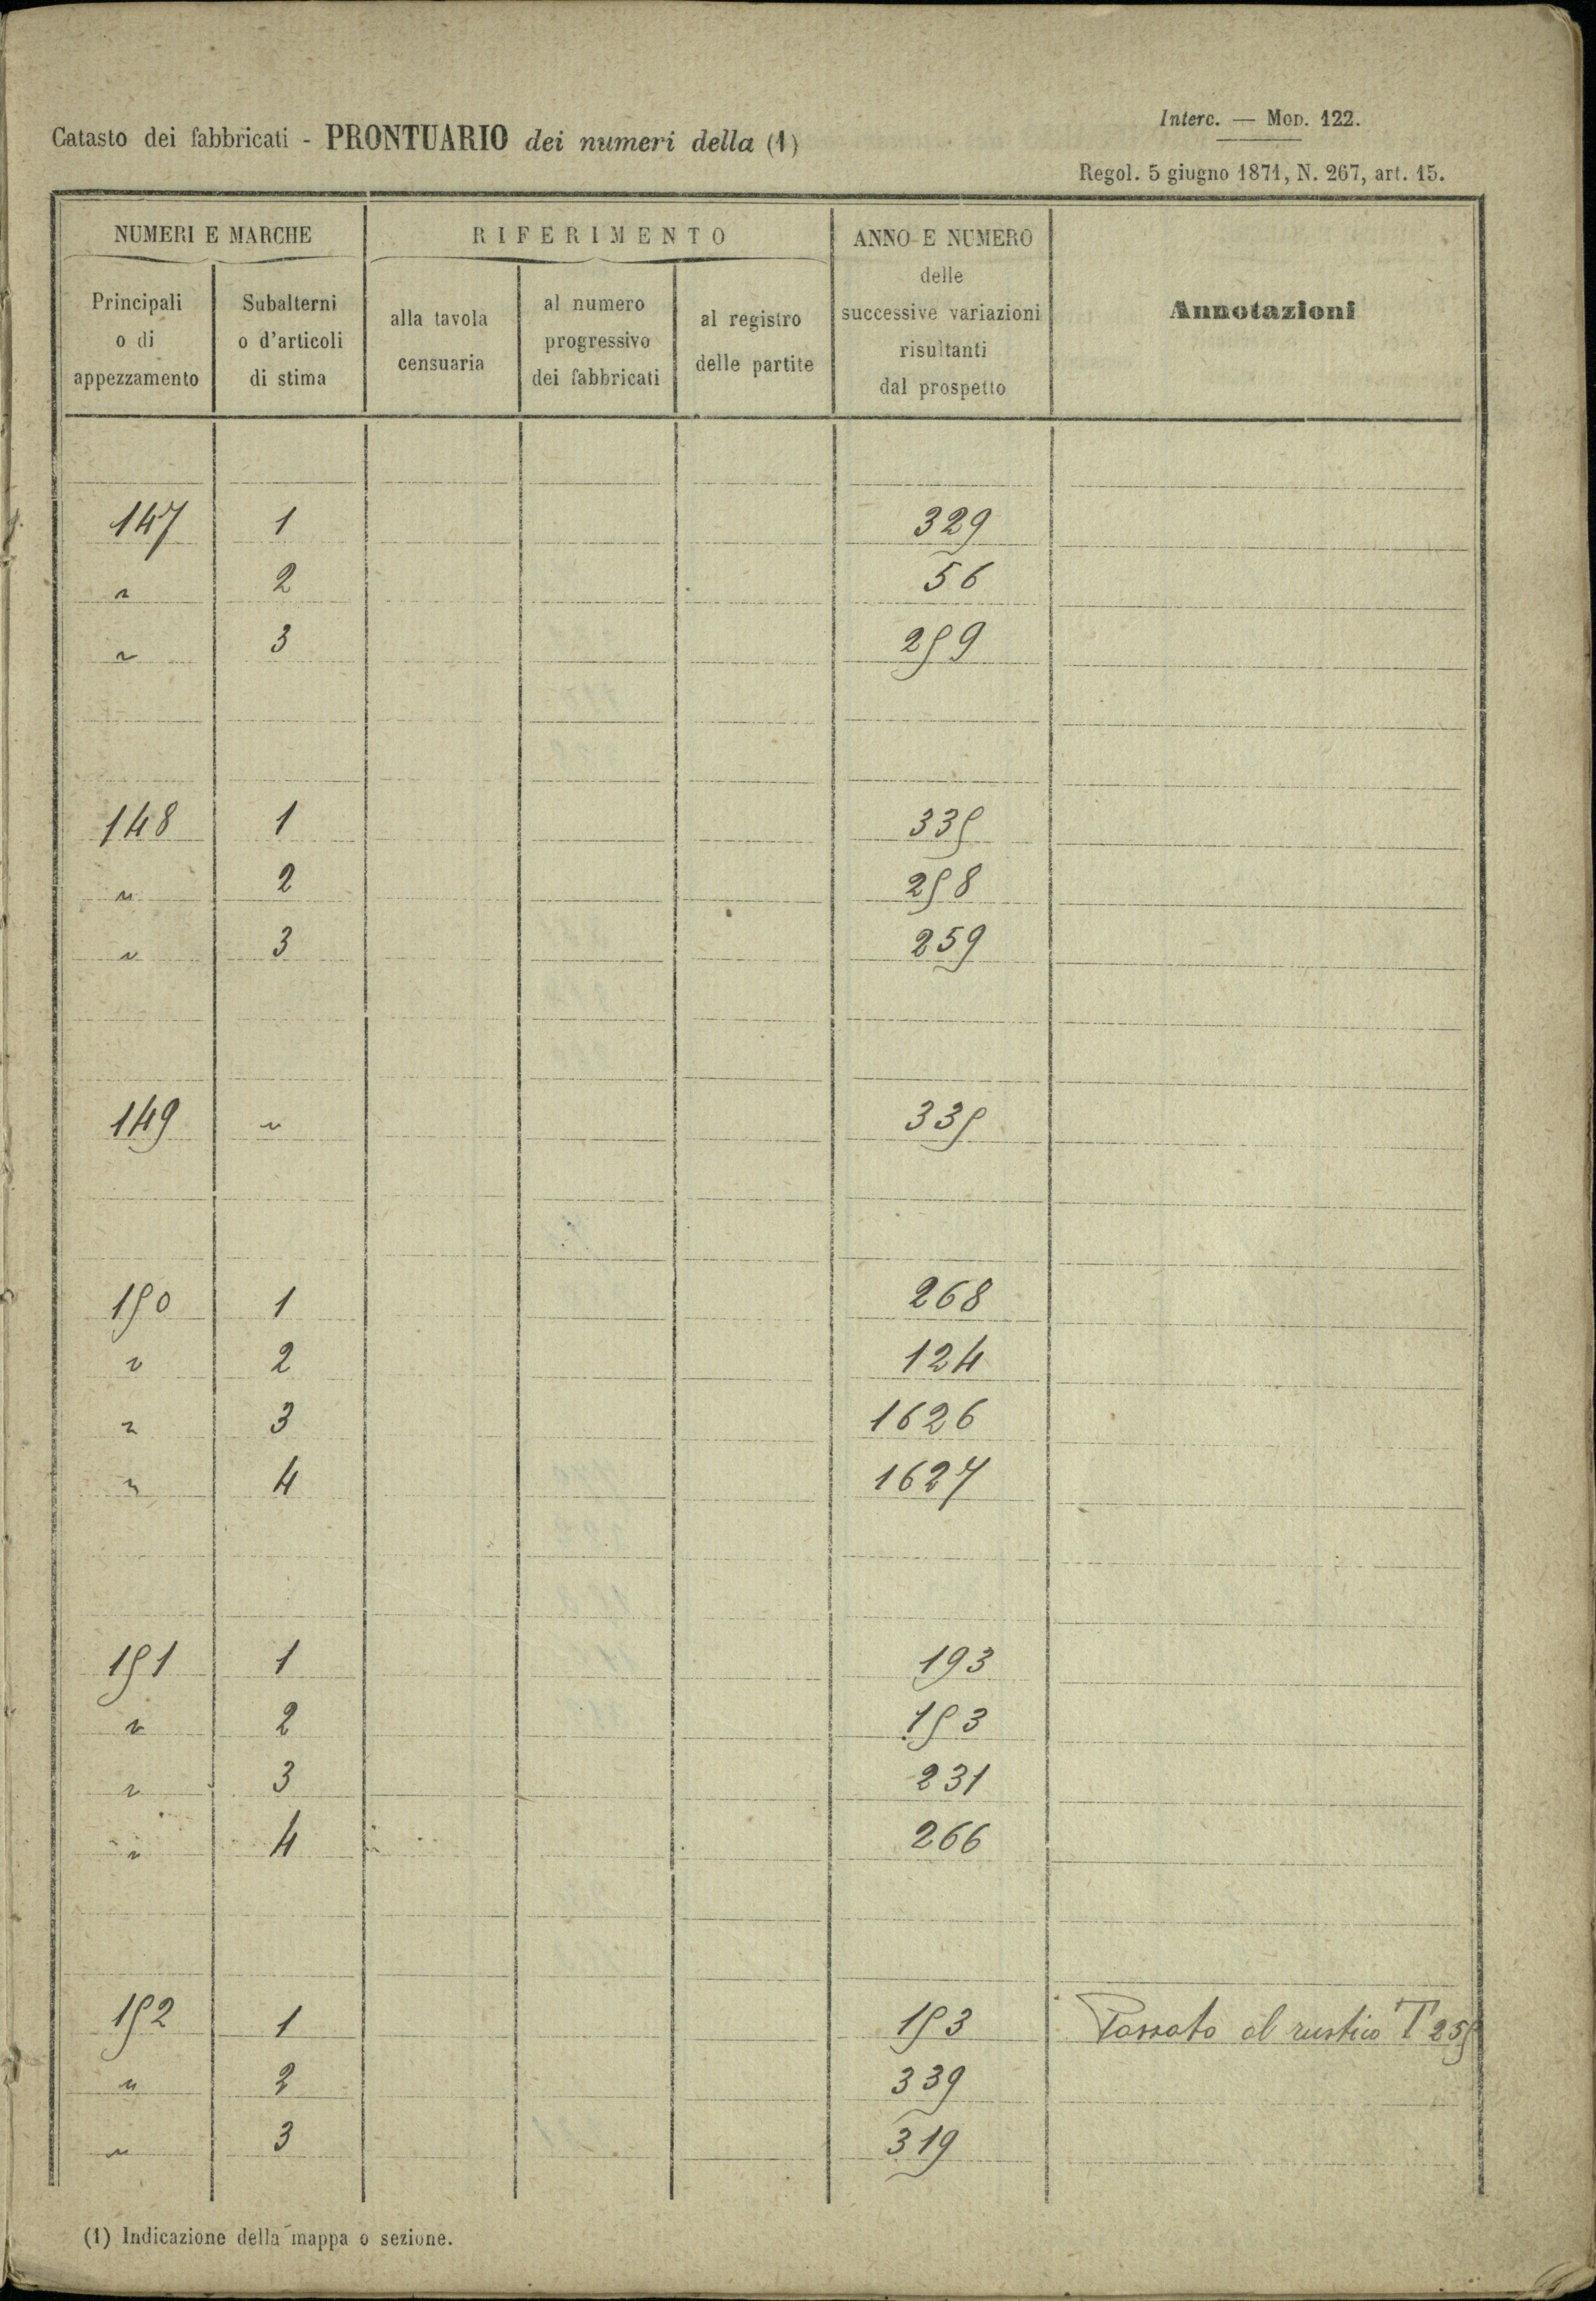 Catasto dei fabbricati - PRONTUARIO dei numeri della (1)
Interc. — Mod. 122.
Regol. 5 giugno 1871, N. 267, art. 15.
NUMERI E MARCHE
RIFERIMENTO
ANNO E NUMERO
delle
successive variazioni
risultanti
dal prospetto
Annotazioni
Principali
o di
appezzamento
Subalterni
o d'articoli
di stima
alla tavola
censuaria
al numero
progressivo
dei fabbricati
al registro
delle partite
147 1 329
" 2 56
" 3 259
148 1 335
" 2 258
" 3 259
149 " 335
150 1 268
" 2 124
" 3 1626
" 4 1627
151 1 193
" 2 153
" 3 231
" 4 266
152 1 153 Passato al rustico T 255
" 2 339
" 3 319
(1) Indicazione della mappa o sezione.